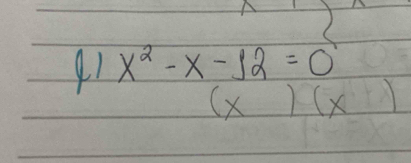 x² - x - 12 = 0
(x    ) (x    )